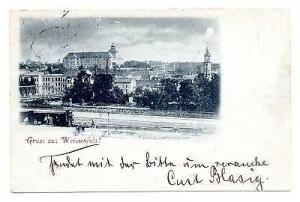 Gruss aus Weissenfels!
sendet mit der Bitte um
Curt Blasig.